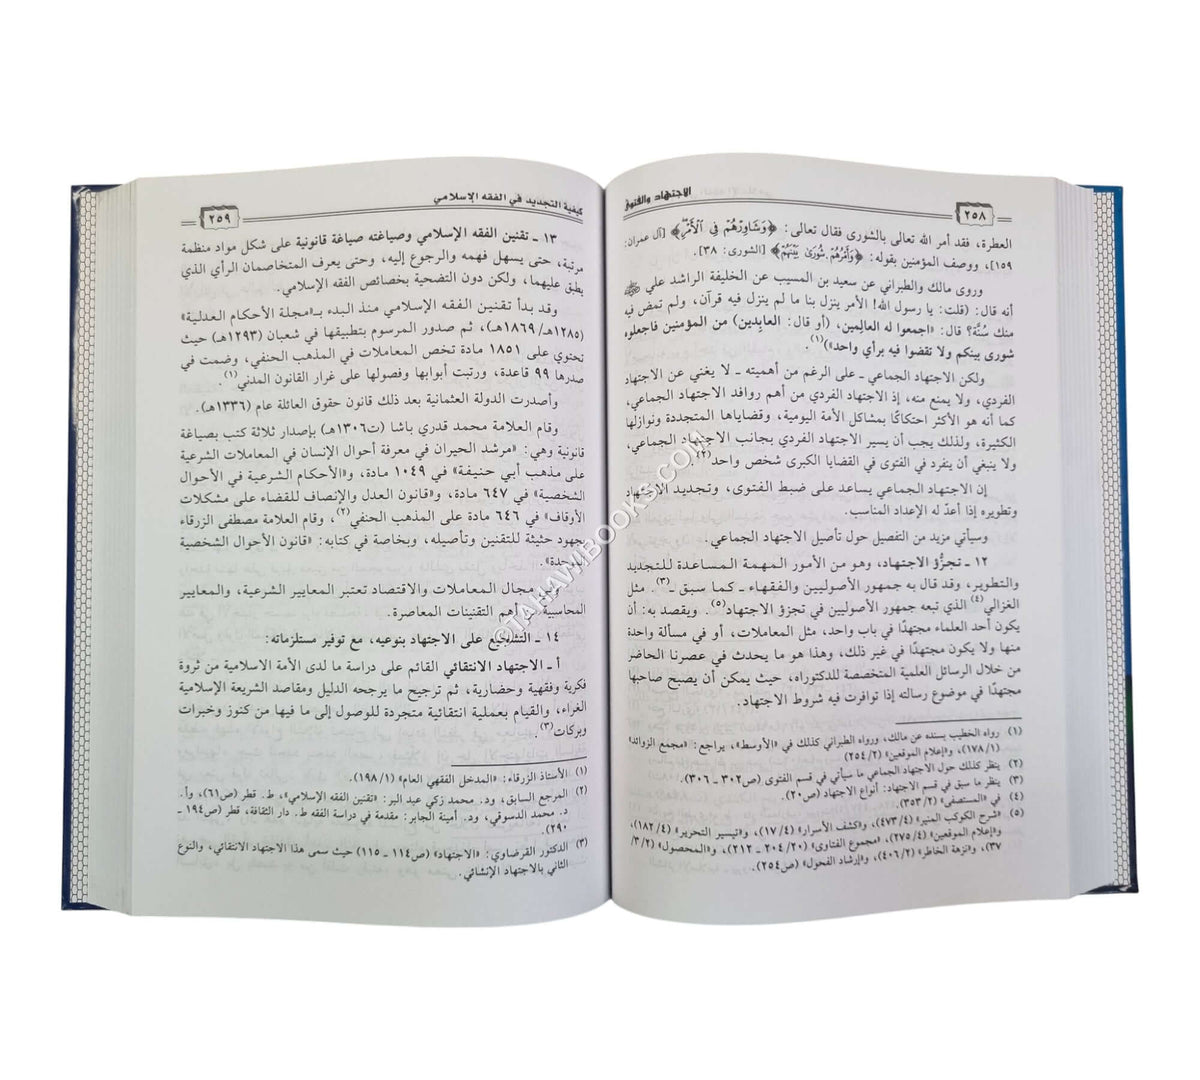 الاجتهاد والفتوى
٢٥٨
العطرة، فقد أمر الله تعالى بالشورى فقال تعالى: ﴿وَشَاوِرْهُمْ فِي الْأَمْرِ﴾ [آل عمران:
١٥٩]، ووصف المؤمنين بقوله: ﴿وَأَمْرُهُمْ شُورَىٰ بَيْنَهُمْ﴾ [الشورى: ٣٨].
وروى مالك والطبراني عن سعيد بن المسيب عن الخليفة الراشد علي
أنه قال: (قلت: يا رسول الله! الأمر ينزل بنا ما لم ينزل فيه قرآن، ولم تمض فيه
منك سُنَّة؟ قال: «اجمعوا له العالِمين، (أو قال: العابدين) من المؤمنين فاجعلوه
شورى بينكم ولا تقضوا فيه برأي واحد»)(١).
ولكن الاجتهاد الجماعي ـ على الرغم من أهميته ـ لا يغني عن الاجتهاد
الفردي، ولا يمنع منه، إذ الاجتهاد الفردي من أهم روافد الاجتهاد الجماعي،
كما أنه هو الأكثر احتكاكًا بمشاكل الأمة اليومية، وقضاياها المتجددة ونوازلها
الكثيرة، ولذلك يجب أن يسير الاجتهاد الفردي بجانب الاجتهاد الجماعي،
ولا ينبغي أن ينفرد في الفتوى في القضايا الكبرى شخص واحد(٢).
إن الاجتهاد الجماعي يساعد على ضبط الفتوى، وتجديد الاجتهاد
وتطويره إذا أعدّ له الإعداد المناسب.
وسيأتي مزيد من التفصيل حول تأصيل الاجتهاد الجماعي.
١٢ ـ تجزُّؤ الاجتهاد، وهو من الأمور المهمة المساعدة للتجديد
والتطوير، وقد قال به جمهور الأصوليين والفقهاء ـ كما سبق ـ(٣). مثل
الغزالي(٤) الذي تبعه جمهور الأصوليين في تجزؤ الاجتهاد(٥). ويقصد به: أن
يكون أحد العلماء مجتهدًا في باب واحد، مثل المعاملات، أو في مسألة واحدة
منها ولا يكون مجتهدًا في غير ذلك، وهذا هو ما يحدث في عصرنا الحاضر
من خلال الرسائل العلمية المتخصصة للدكتوراه، حيث يمكن أن يصبح صاحبها
مجتهدًا في موضوع رسالته إذا توافرت فيه شروط الاجتهاد:
(١) رواه الخطيب بسنده عن مالك، ورواه الطبراني كذلك في «الأوسط»، يراجع: «مجمع الزوائد»
(١/١٧٨)، و«إعلام الموقعين» (٢/٢٥٤).
(٢) ينظر كذلك حول الاجتهاد الجماعي ما سيأتي في قسم الفتوى (ص٣٠٢ ـ ٣٠٦).
(٣) ينظر ما سبق في قسم الاجتهاد: أنواع الاجتهاد (ص٢٠).
(٤) في «المستصفى» (٢/٣٥٣).
(٥) «شرح الكوكب المنير» (٤/٤٧٣)، و«كشف الأسرار» (٤/١٧)، و«تيسير التحرير» (٤/١٨٢)،
و«إعلام الموقعين» (٤/٢٧٥)، «مجموع الفتاوى» (٢٠/٢٠٤ ـ ٢١٢)، و«المحصول» (٢/٣/
٣٧)، و«نزهة الخاطر» (٢/٤٠٦)، و«إرشاد الفحول» (ص٢٥٤).
كيفية التجديد في الفقه الإسلامي
٢٥٩
١٣ ـ تقنين الفقه الإسلامي وصياغته صياغة قانونية على شكل مواد منظمة
مرتبة، حتى يسهل فهمه والرجوع إليه، وحتى يعرف المتخاصمان الرأي الذي
يطبق عليهما، ولكن دون التضحية بخصائص الفقه الإسلامي.
وقد بدأ تقنين الفقه الإسلامي منذ البدء بـ«مجلة الأحكام العدلية»
(١٢٨٥هـ/١٨٦٩هـ)، ثم صدور المرسوم بتطبيقها في شعبان (١٢٩٣هـ) حيث
تحتوي على ١٨٥١ مادة تخص المعاملات في المذهب الحنفي، وضمت في
صدرها ٩٩ قاعدة، ورتبت أبوابها وفصولها على غرار القانون المدني(١).
وأصدرت الدولة العثمانية بعد ذلك قانون حقوق العائلة عام (١٣٣٦هـ).
وقام العلامة محمد قدري باشا (ت١٣٠٦هـ) بإصدار ثلاثة كتب بصياغة
قانونية وهي: «مرشد الحيران في معرفة أحوال الإنسان في المعاملات الشرعية
على مذهب أبي حنيفة» في ١٠٤٩ مادة، و«الأحكام الشرعية في الأحوال
الشخصية» في ٦٤٧ مادة، و«قانون العدل والإنصاف للقضاء على مشكلات
الأوقاف» في ٦٤٦ مادة على المذهب الحنفي(٢)، وقام العلامة مصطفى الزرقاء
بجهود حثيثة للتقنين وتأصيله، وبخاصة في كتابه: «قانون الأحوال الشخصية
مجال المعاملات والاقتصاد تعتبر المعايير الشرعية، والمعايير
المحاسبية أهم التقنينات المعاصرة.
١٤ ـ التشجيع على الاجتهاد بنوعيه، مع توفير مستلزماته:
أ ـ الاجتهاد الانتقائي القائم على دراسة ما لدى الأمة الاسلامية من ثروة
فكرية وفقهية وحضارية، ثم ترجيح ما يرجحه الدليل ومقاصد الشريعة الإسلامية
الغراء، والقيام بعملية انتقائية متجردة للوصول إلى ما فيها من كنوز وخبرات
وبركات(٣).
(١) الأستاذ الزرقاء: «المدخل الفقهي العام» (١/١٩٨).
(٢) المرجع السابق، ود. محمد زكي عبد البر: «تقنين الفقه الإسلامي»، ط. قطر (ص٦١)، وأ.
د. محمد الدسوقي، ود. أمينة الجابر: مقدمة في دراسة الفقه ط. دار الثقافة، قطر (ص١٩٤ ـ
٢٩٠).
(٣) الدكتور القرضاوي: «الاجتهاد» (ص١١٤ ـ ١١٥) حيث سمى هذا الاجتهاد الانتقائي، والنوع
الثاني بالاجتهاد الإنشائي.
©TAHAWIBOOKS.COM